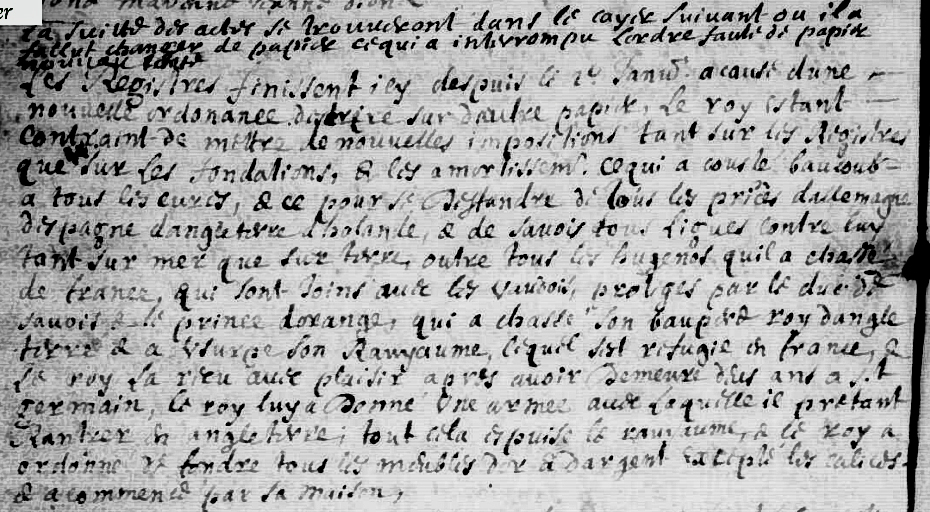 er
La suitte des actes se trouveront dans le cayer suivant ou il a
fallut changer de papier ce qui a interrompu lordre faute de papier
nouveau
Les Registres finissent icy despuis le 1er Janv. a cause dune
nouvelle ordonance descrire sur dautre papier, Le roy estant
contraint de mettre de nouvelles impositions tant sur les Registres
que sur les fondations, & les amortissem. ce qui a couste baucoub
a tous les eures, & ce pour se deffandre de tous les princes dallemagne
despagne dangleterre dholande, & de savois tous ligues contre luy
tant sur mer que sur terre, outre tous les hugenos quil a chassé
de france, qui sont joins avec les vaudois, proteges par le duc de
savois & le prince dorange, qui a chassé son baupere roy dangle
terre & a usurpe son Rawyaume, lequel sest refugie en france, &
le roy la recu avec plaisir apres avoir demeure deus ans a st
germain, le roy luy a donné une armee avec laquelle il pretant
Rantrer en angleterre, tout cela espuise le rawyaume, & le roy a
ordonné de fondre tous les meubles dor & dargent excepte les calices
& a commencé par sa maison,